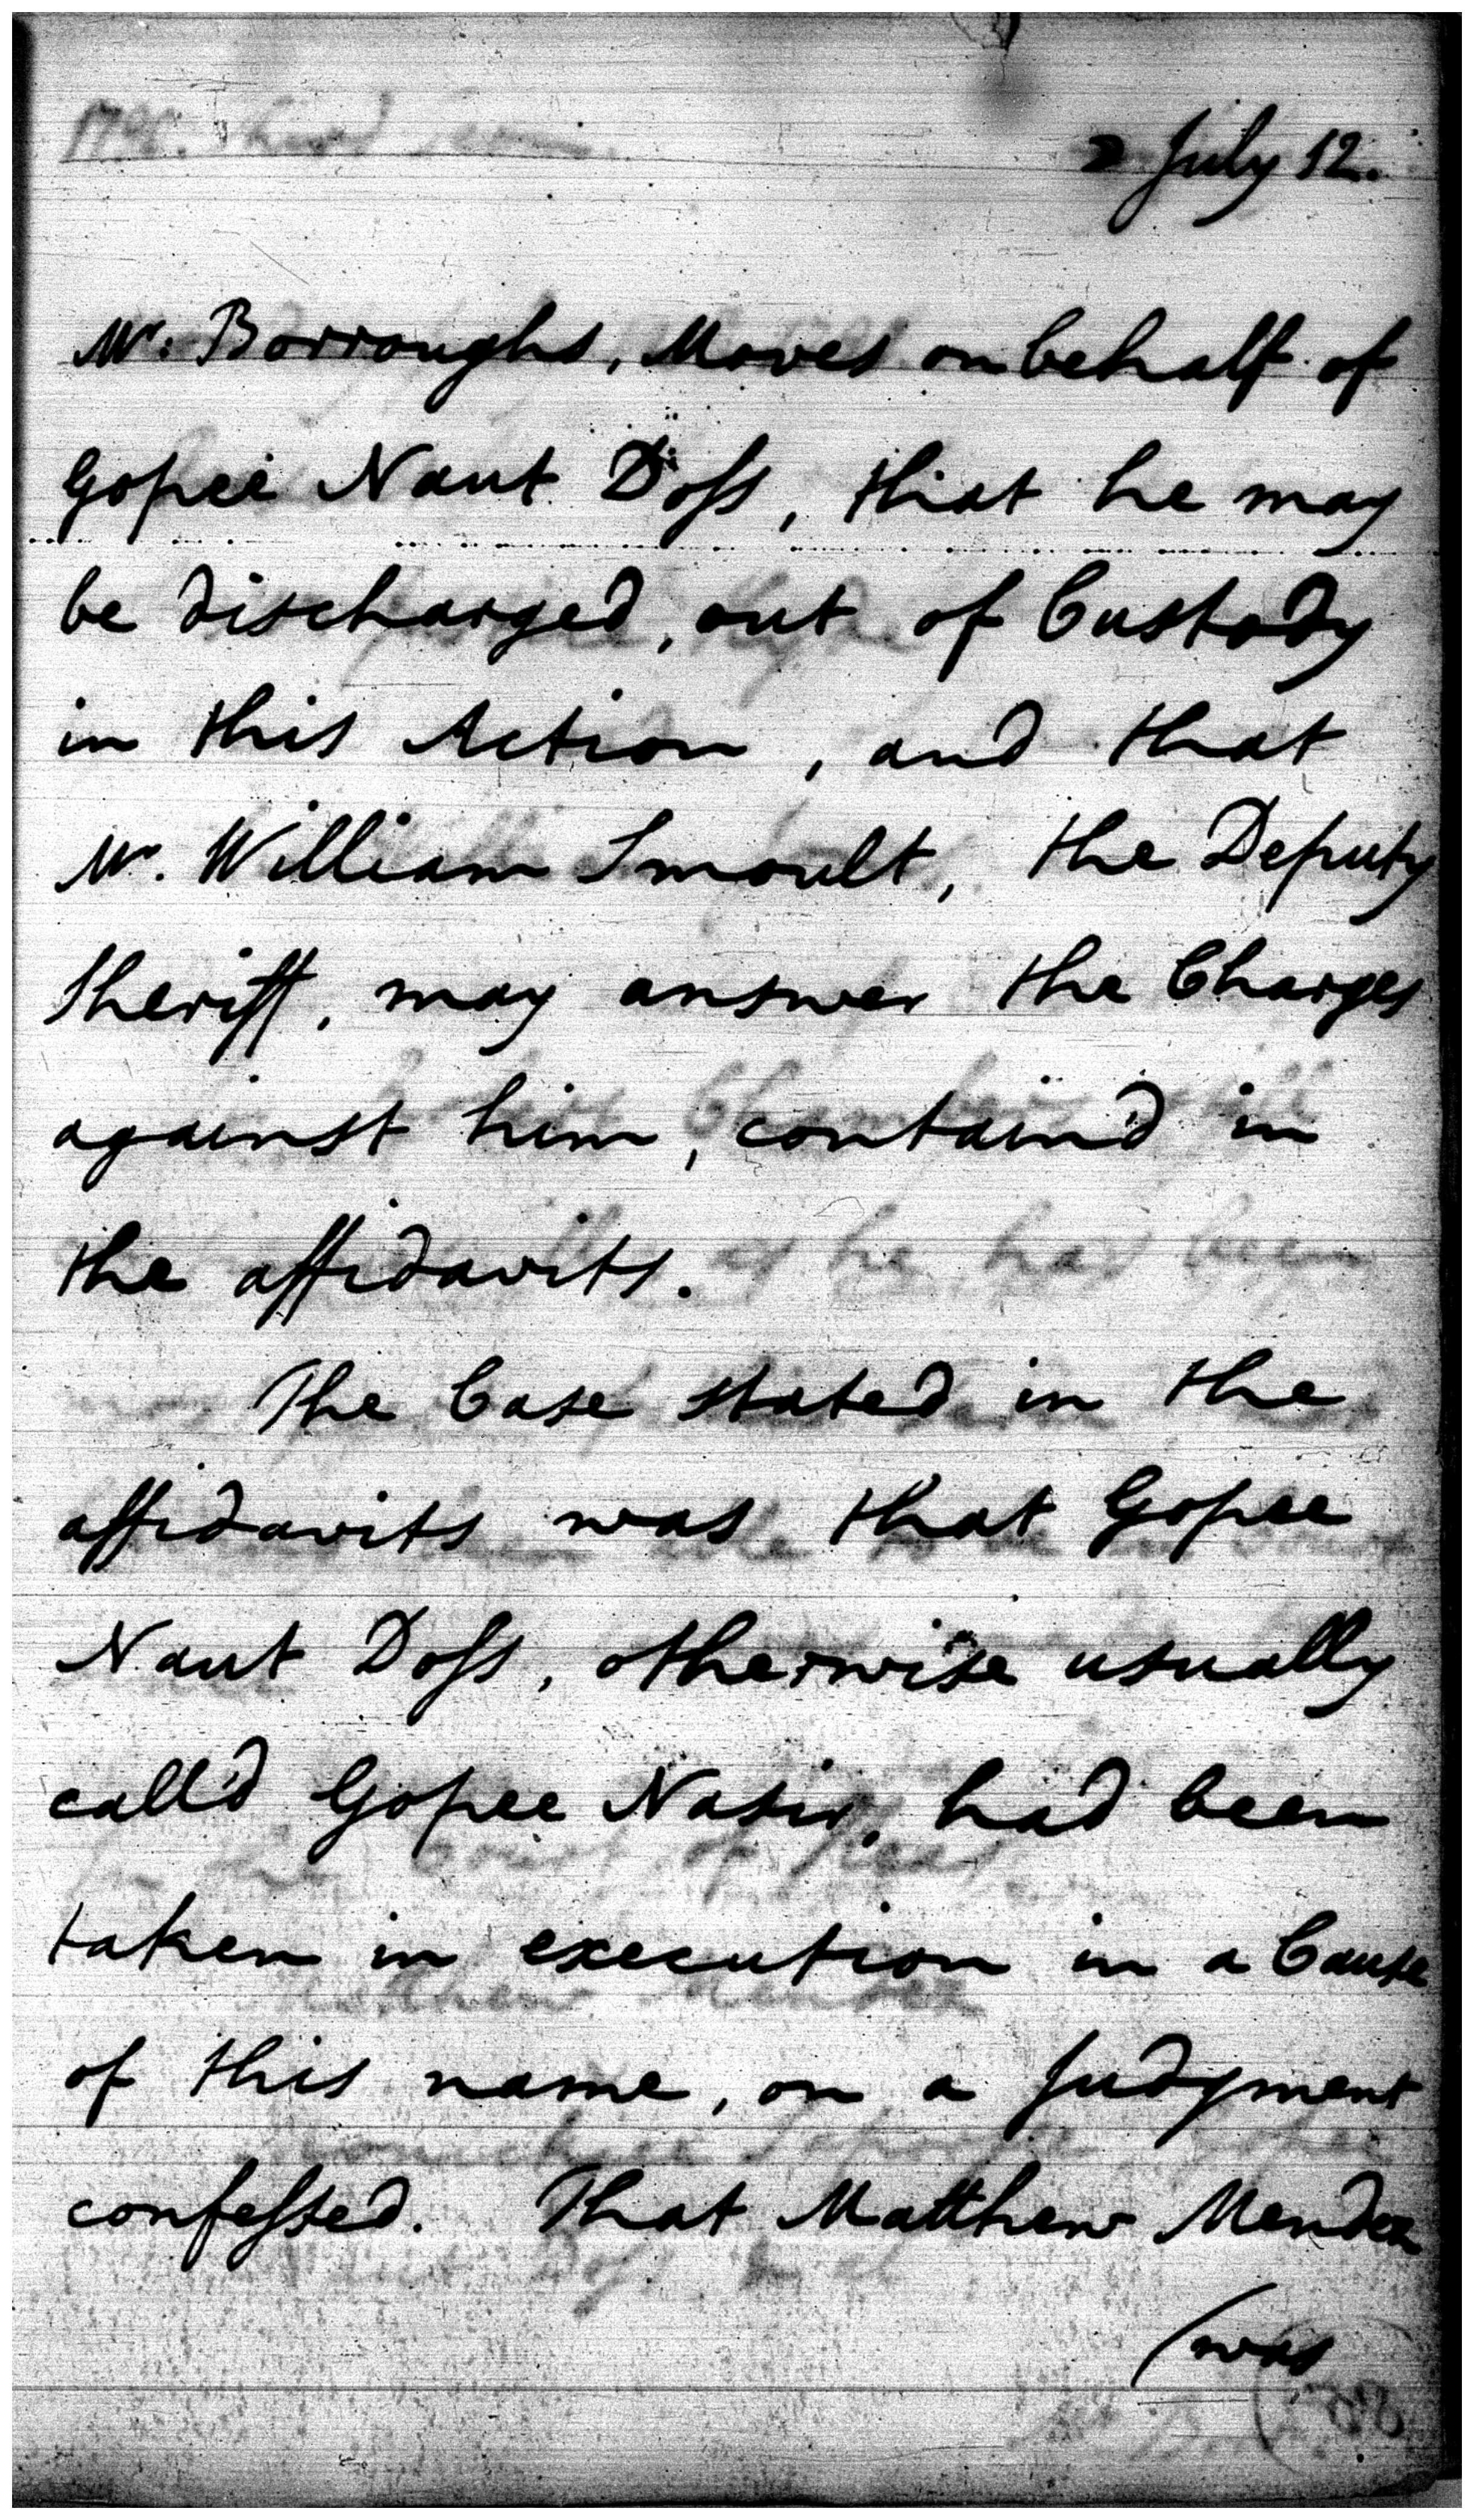 July 12.
Mr. Borroughs, Moves on behalf of
Gopee Naut Doss, that he may
be discharged, out of Custody
in this Action, and that
Mr. William Smoult, the Deputy
Sheriff, may answer the Charges
against him, contain'd in
the affidavits.
The Case stated in the
affidavits was that Gopee
Naut Doss, otherwise usually
call'd Gopee Nasir, had been
taken in execution in a Cause
of this name, on a Judgment
confessed. That Matthew Mendez
(was